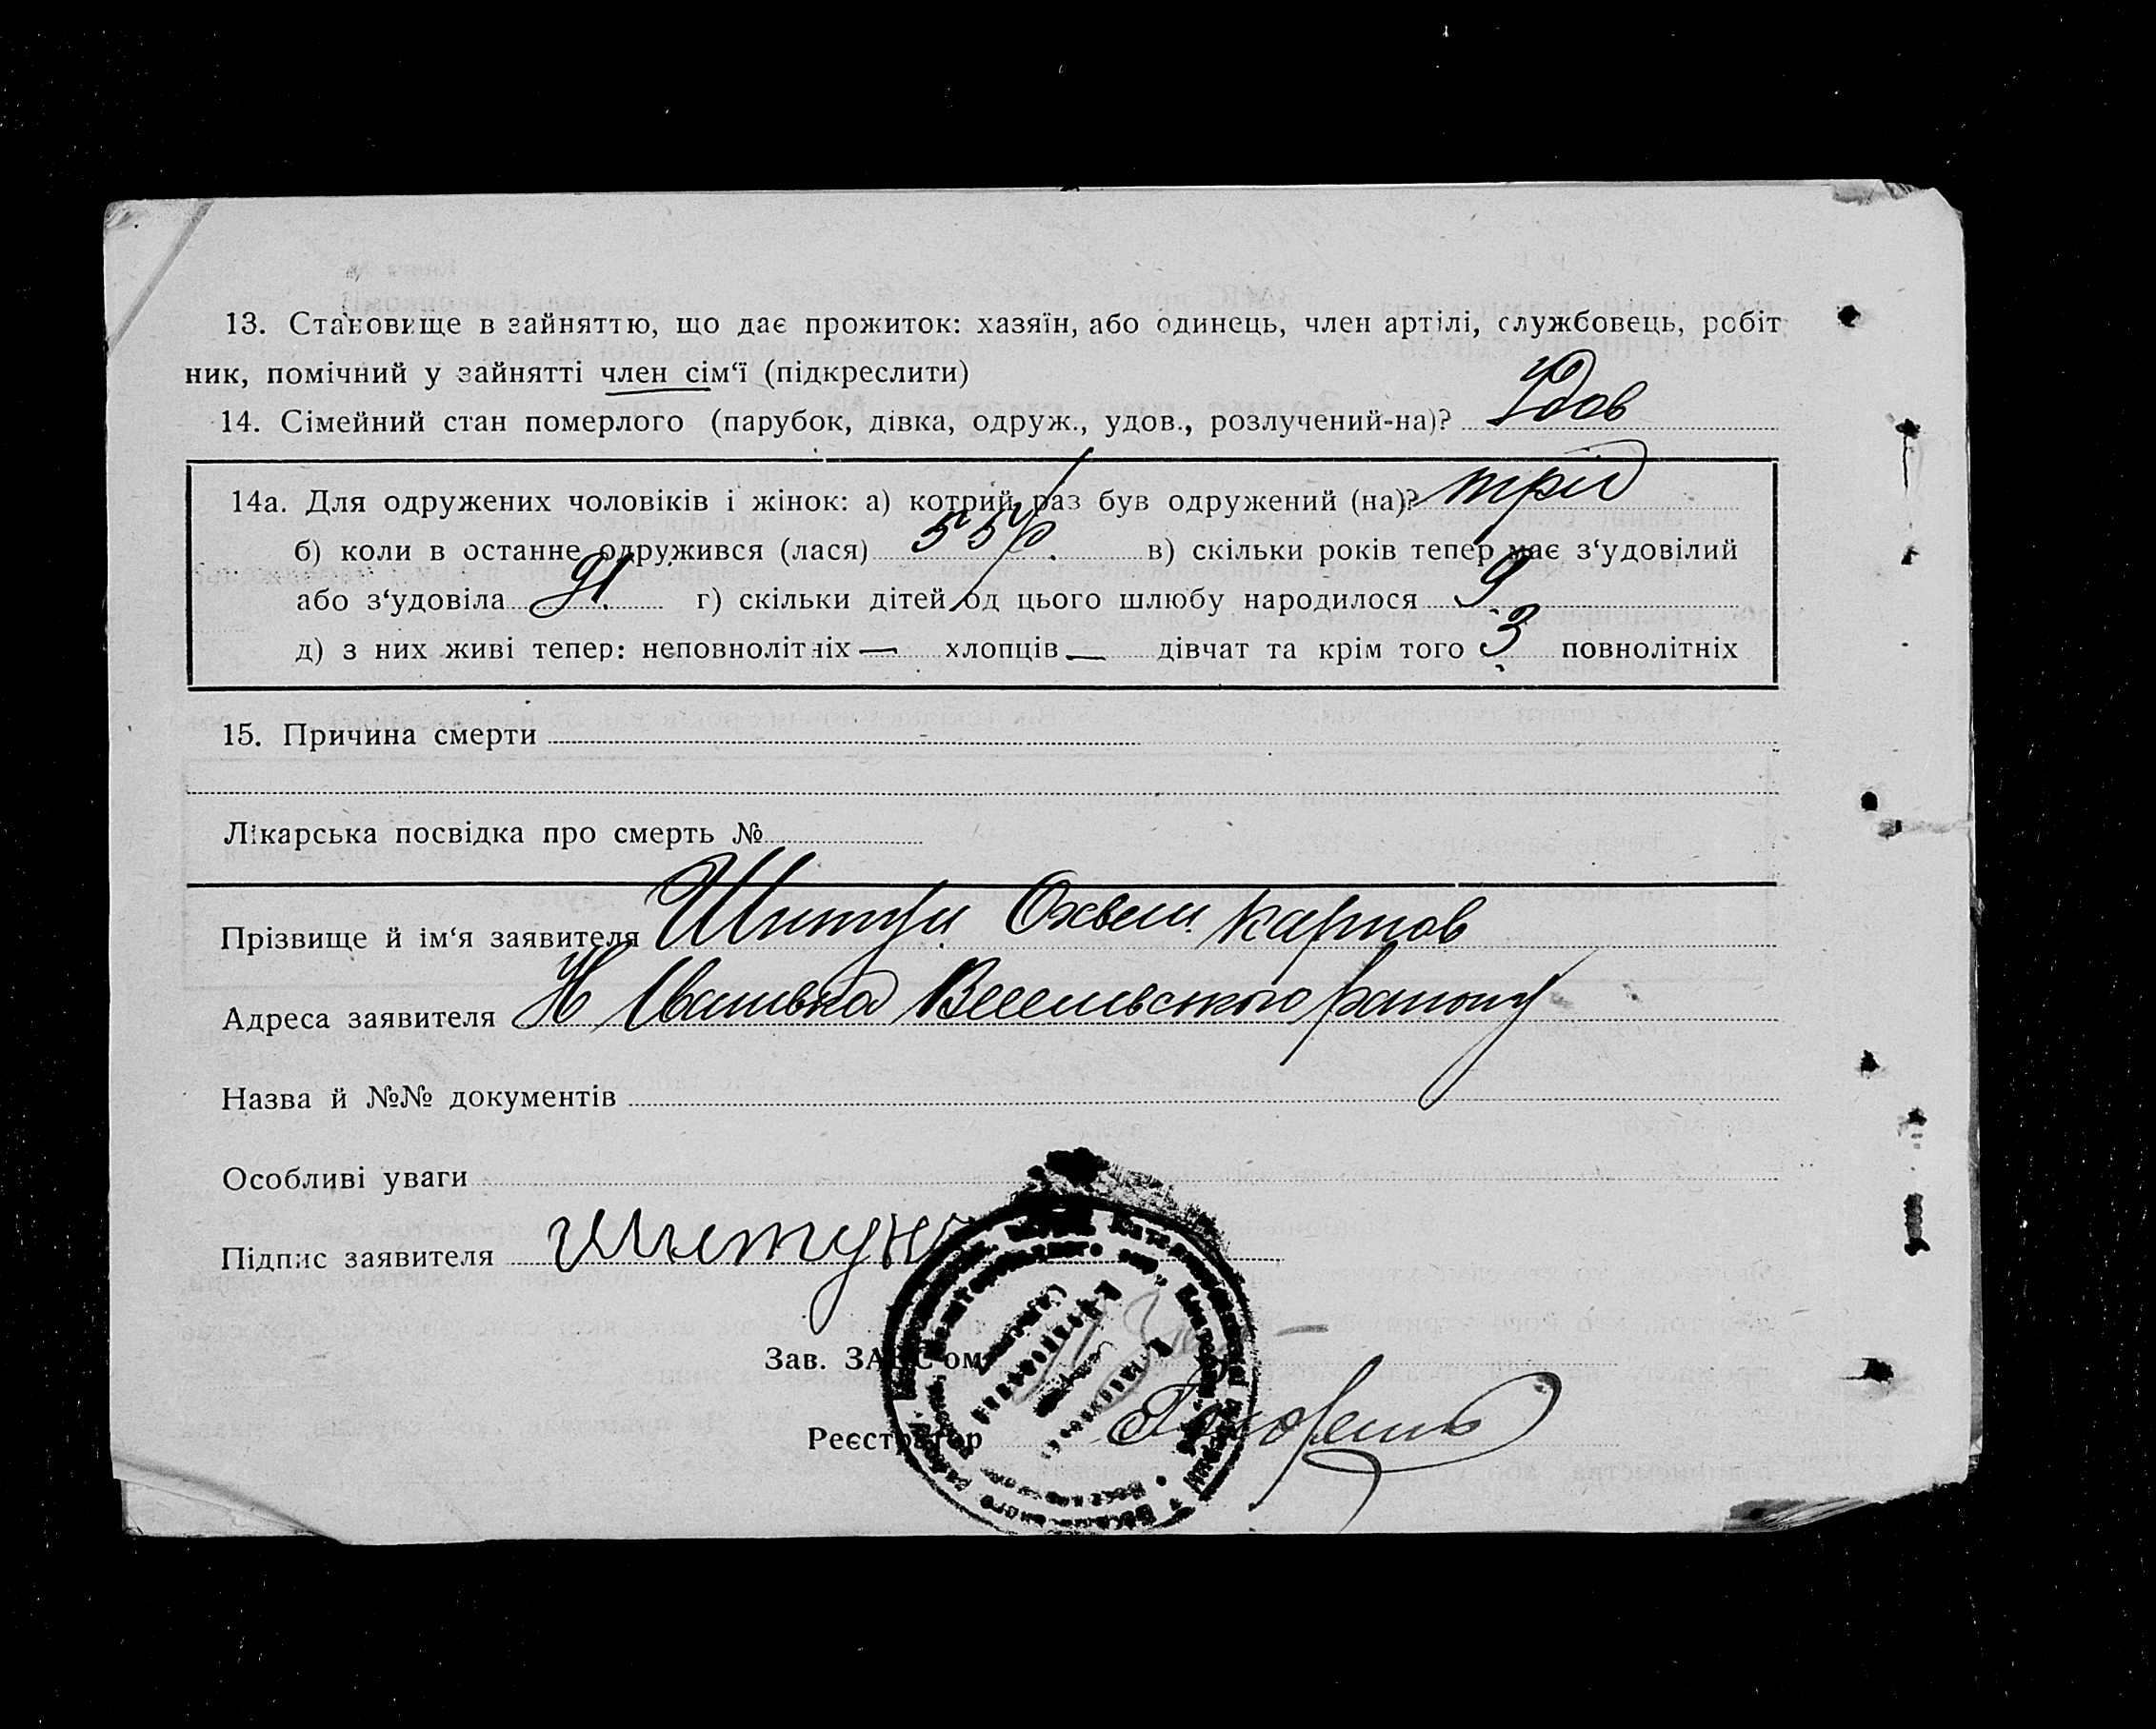 13. Становище в зайняттю, що дає прожиток: хазяїн, або одинець, член артілі, службовець, робіт
ник, помічний у зайнятті член сім‘ї (підкреслити)
14. Сімейний стан померлого (парубок, дівка, одруж., удов., розлучений-на)? Удов
14а. Для одружених чоловіків і жінок: а) котрий раз був одружений (на)?
б) коли в останне одружився (лася) 55 в) скільки років тепер має з‘удовілий
або з‘удовіла 91 г) скільки дітей од цього шлюбу народилося 9
д) з них живі тепер: неповнолітніх — хлопців — дівчат та крім того 3 повнолітніх
15. Причина смерти
Лікарська посвідка про смерть №
Прізвище й ім‘я заявителя Шитун Карпов
Адреса заявителя Н Іванівка Веселівського району
Назва й №№ документів
Особливі уваги
Підпис заявителя Шитун
Зав. ЗАГС‘ом
Реєстратор